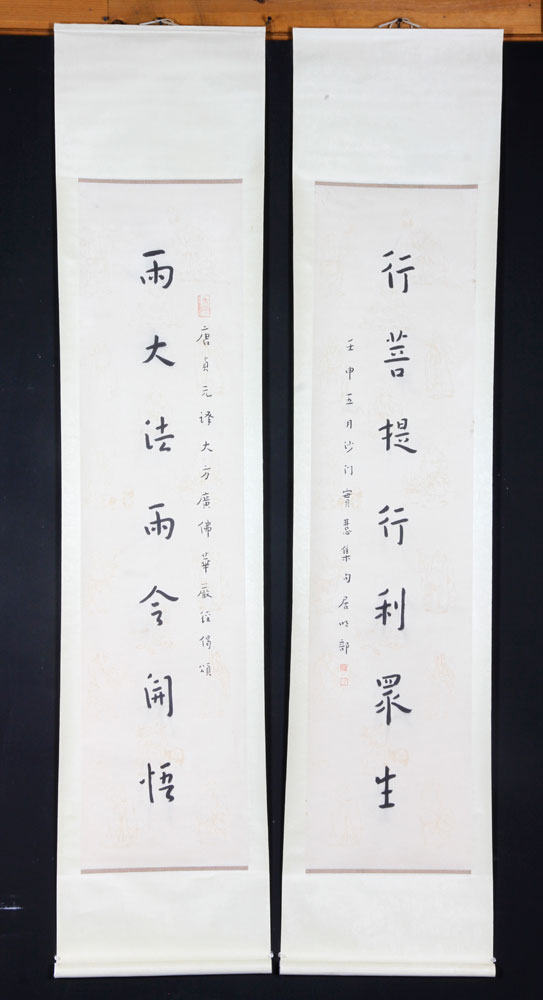 行菩提行利眾生
壬申五月沙門集句居
唐貞元譯大方廣佛華嚴經偈頌
雨大法雨令開悟